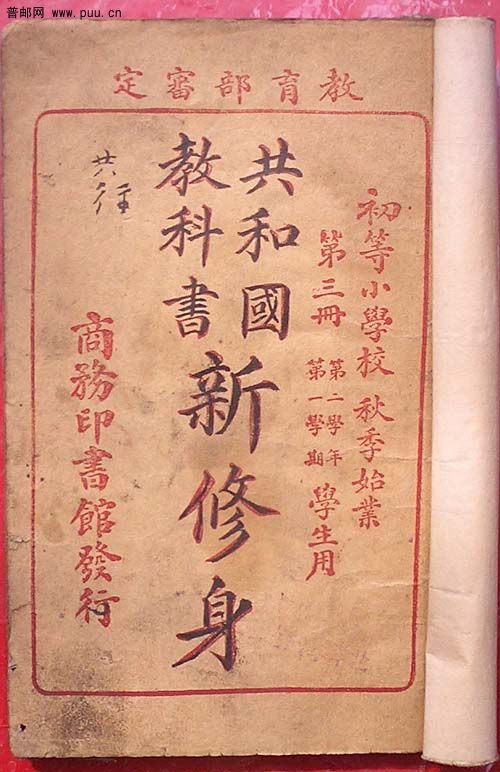 普邮网 www.puu.cn
教育部審定
初等小學校 秋季始業
第三冊 第二學年 第一學期 學生用
共和國
教科書
新修身
商務印書館發行